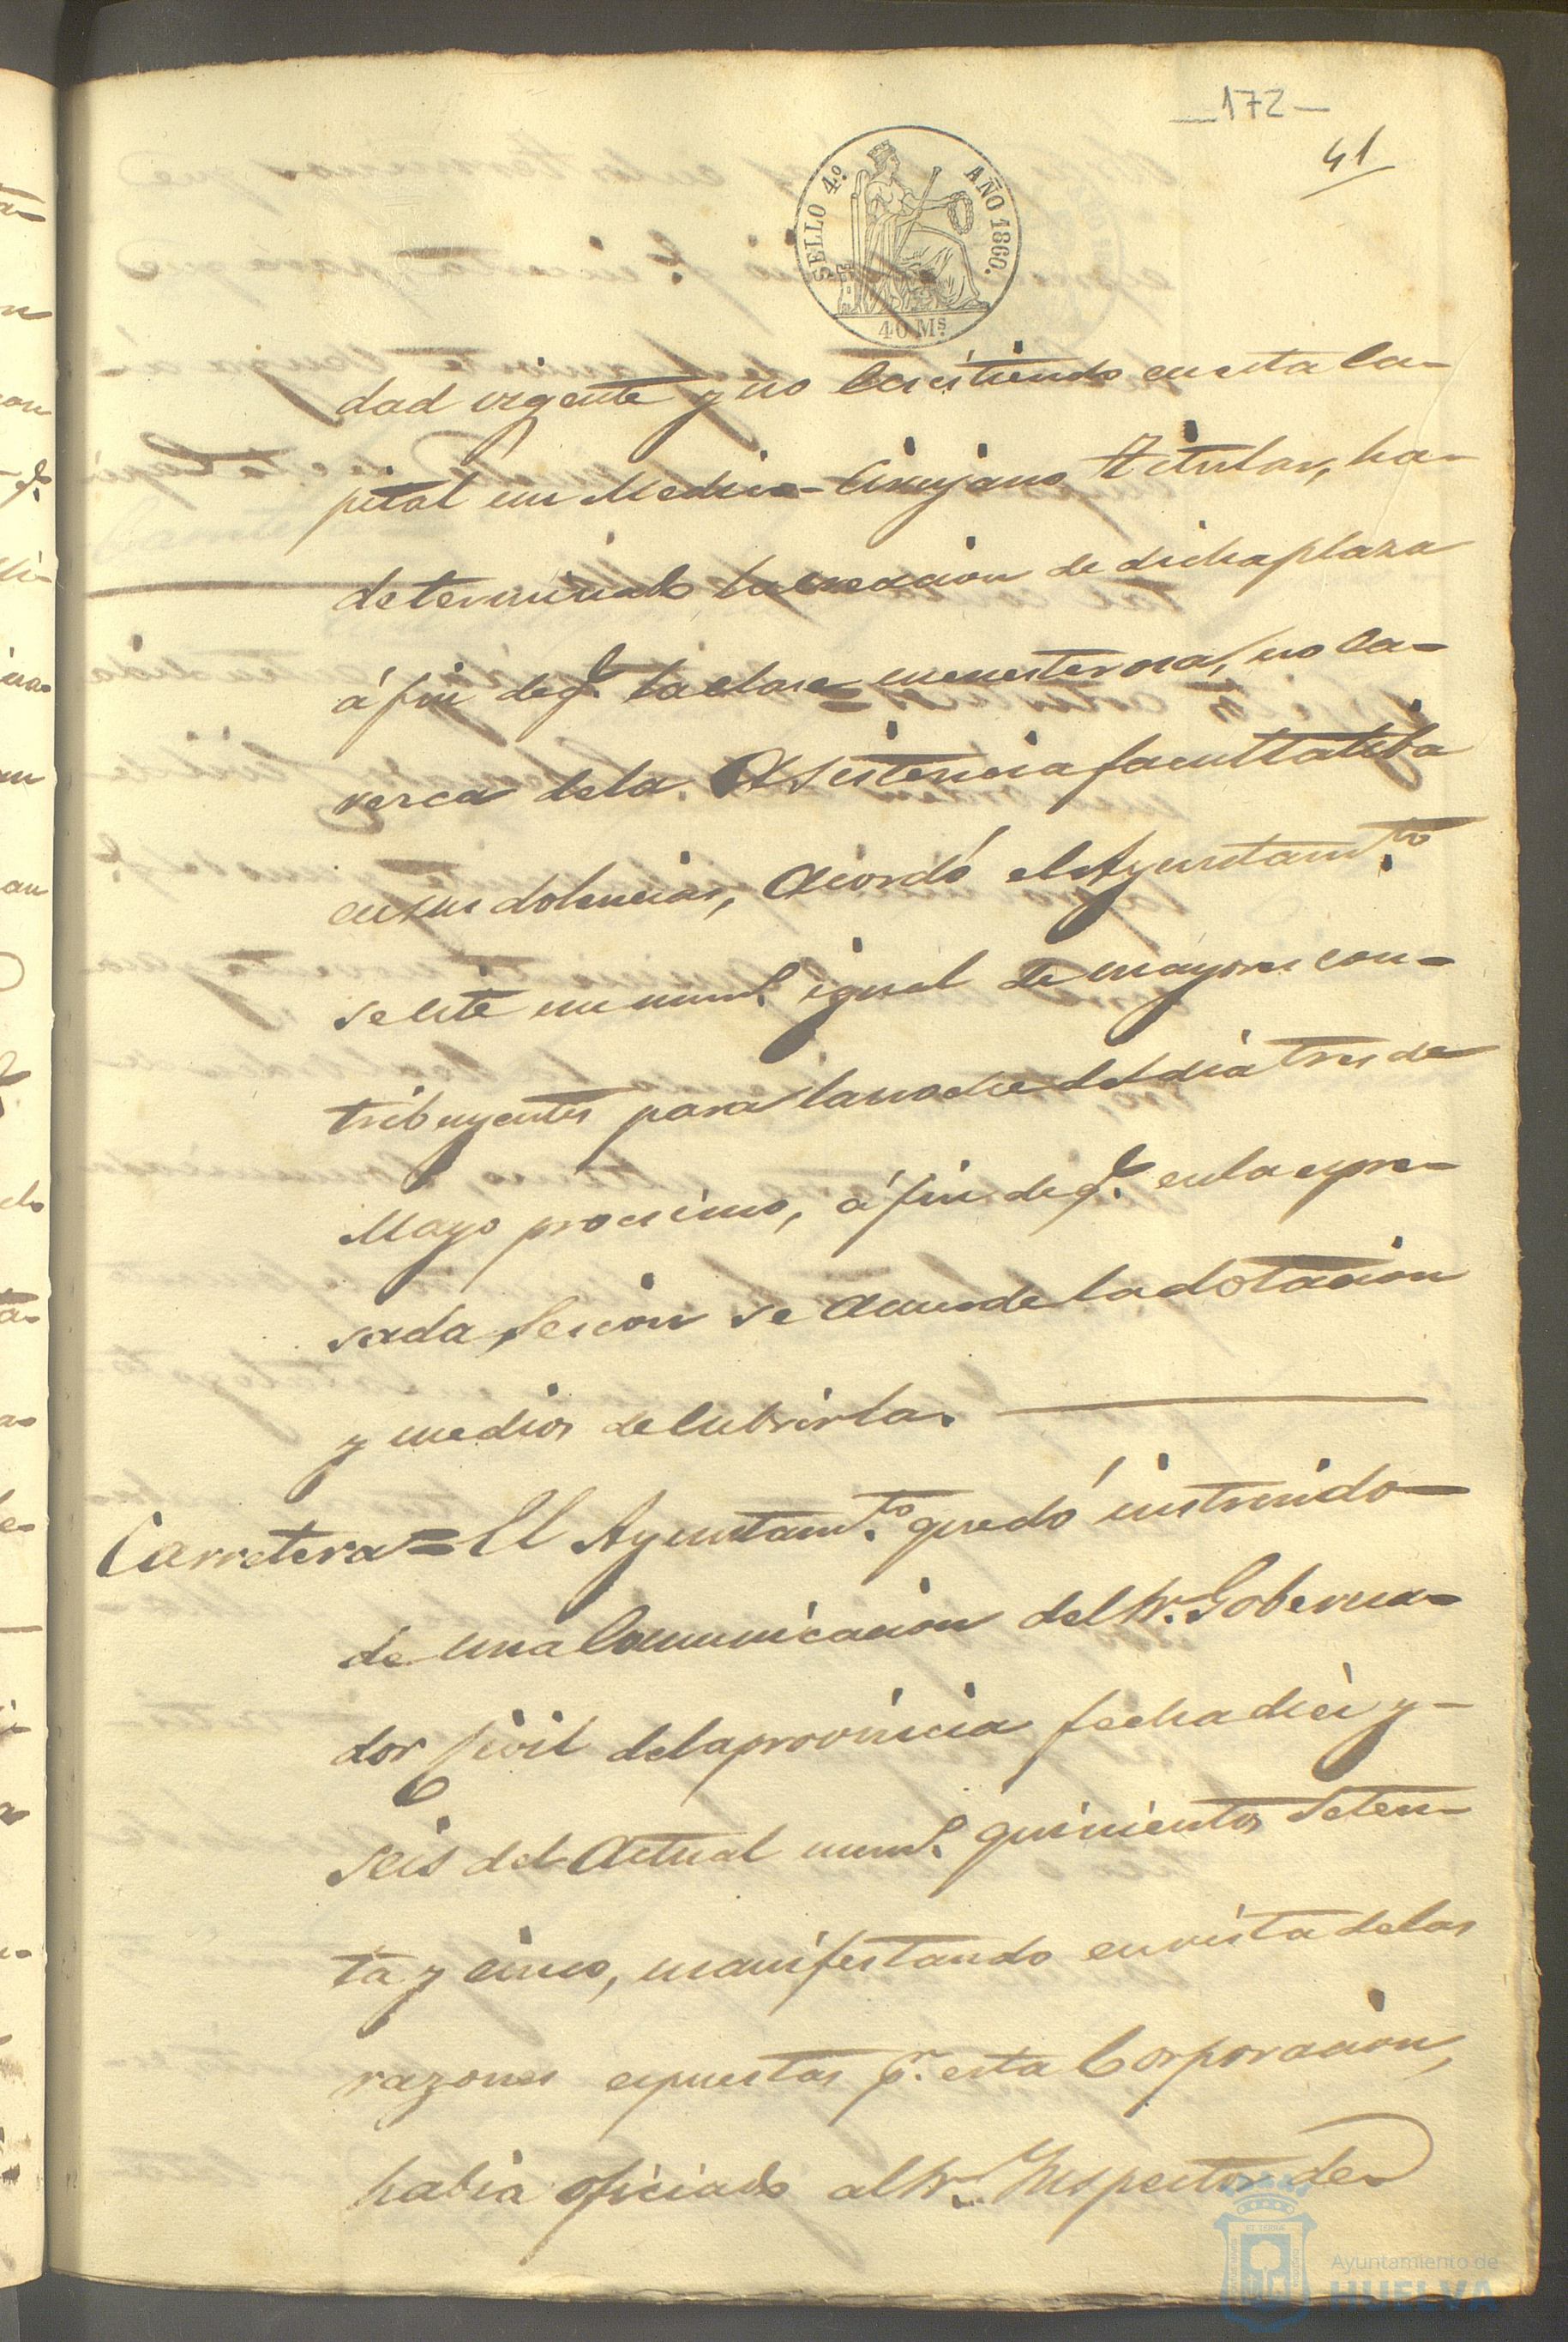 —172—
41
SELLO 4.º AÑO 1860.
40 Ms.
dad vigente y no Ecsistiendo en esta Ca-
pital un Medico-Cirujano Titular, ha-
determinado la creacion de dicha plaza
á fin de q.e la clase menesterosa, no ca-
rezca de la Asistencia facultatiba
en sus dolencias, Acordó el Ayuntam.to
se cite un num.o igual de mayores con-
tribuyentes para la noche del dia tres de
Mayo procsimo, á fin de q.e en la espre-
sada Sesion se Acuerde la dotacion
y medios de Cubrirla.
Carretera = El Ayuntam.to quedó instruido
de una Comunicacion del Sr. Goberna-
dor Civil de la provincia fecha diez y-
seis del Actual num.o quinientos Seten-
ta y cinco, manifestando en vista de las
razones espuestas p.r esta Corporacion,
habia oficiado al Sr. Inspector de
Ayuntamiento de
HUELVA